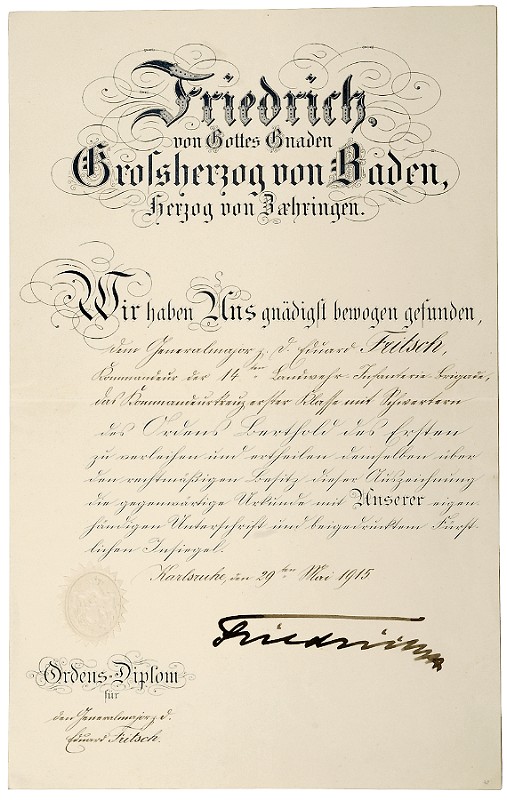 Friedrich,
von Gottes Gnaden
Grossherzog von Baden,
Herzog von Zæhringen.
Wir haben Uns gnädigst bewogen gefunden,
dem Generalmajor z. D. Eduard Fritsch,
Kommandeur der 14ten Landwehr-Infanterie-Brigade,
das Kommandeurkreuz erster Klasse mit Schwertern
des Ordens Berthold des Ersten
zu verleihen und ertheilen demselben über
den rechtmäßigen Besitz dieser Auszeichnung
die gegenwärtige Urkunde mit Unserer eigen-
händigen Unterschrift und beigedrucktem Fürst-
lichen Insiegel.
Karlsruhe, den 29ten Mai 1915
Friedrich
Ordens-Diplom
für
den Generalmajor z. D.
Eduard Fritsch.